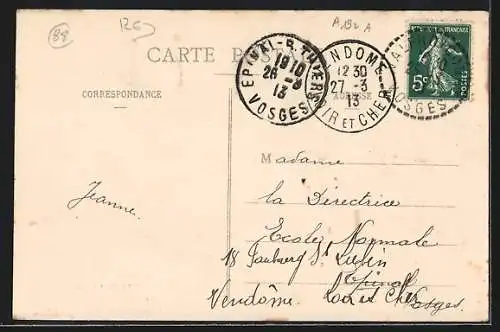 88
A 13 A
CARTE P
CORRESPONDANCE
ADRESSE
EPINAL - R. THIERS
19 10
26 -3
13
VOSGES
VENDOME
12 30
27 -3
13
LOIR ET CHER
VOSGES
5c
POSTES
Madame
Jeanne.
la Directrice
Ecole Normale
18 Faubourg St Lubin
Epinal
Vendôme. Loir et Cher Vosges.